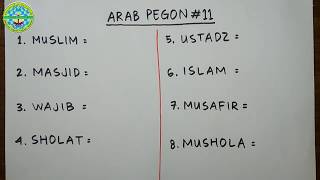 ARAB PEGON #11
1. MUSLIM =
2. MASJID =
3. WAJIB =
4. SHOLAT =
5. USTADZ =
6. ISLAM =
7. MUSAFIR =
8. MUSHOLA =